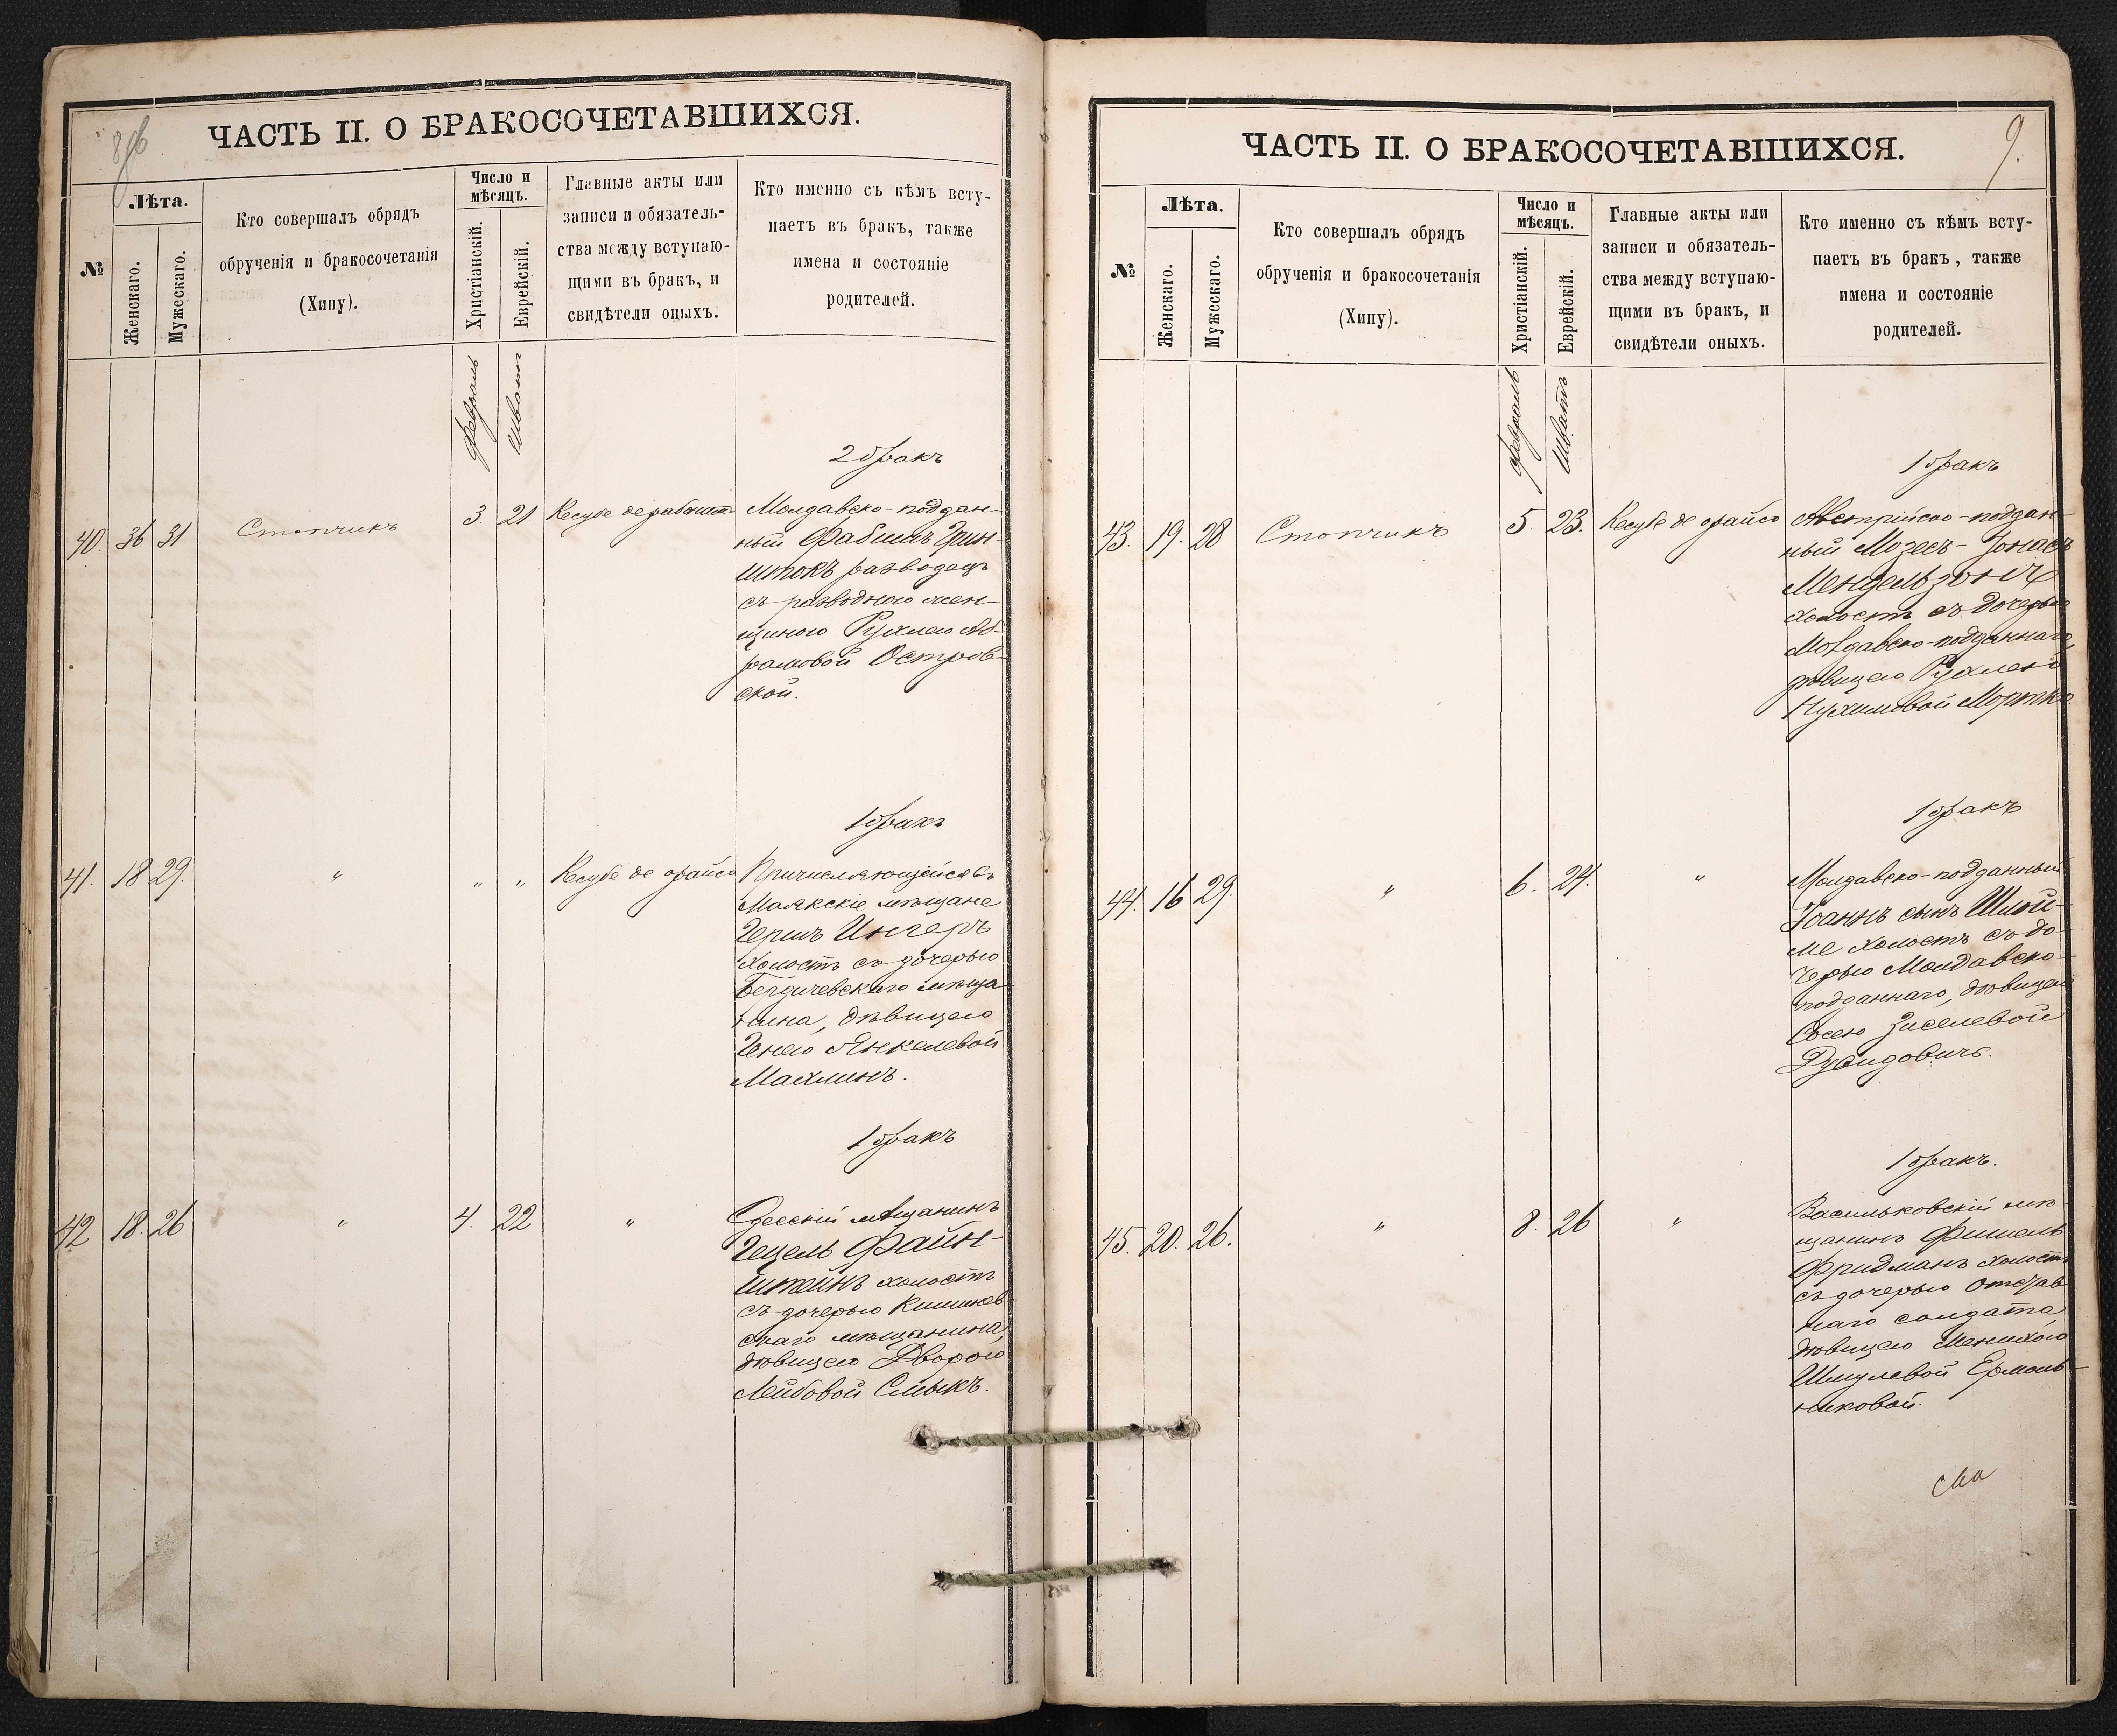 8об
ЧАСТЬ II. О БРАКОСОЧЕТАВШИХСЯ.
№
Лѣта.
Женскаго.
Мужескаго.
Кто совершалъ обрядъ
обрученія и бракосочетанія
(Хипу).
Число и
мѣсяцъ.
Христіанскій.
Еврейскій.
Главные акты или
записи и обязатель-
ства между вступаю-
щими въ бракъ, и
свидѣтели оныхъ.
Кто именно съ кѣмъ всту-
паетъ въ бракъ, также
имена и состояніе
родителей.
Февраль
Шватъ
2 бракъ
40. 36 31 Стопчикъ 3 21. Кесубе дерабонимъ
Молдавско-поддан-
ный Фабишъ Грин-
штокъ разводецъ
съ разводною жен-
щиною Рухлею Аб-
рамовой Остров-
ской.
1 бракъ
41. 18 29. " " " Кесубе де орайсо
Причисляющійся въ
Маякскіе мѣщане
Гершъ Ингеръ
холостъ съ дочерью
Бердичевскаго мѣща-
нина, дѣвицею
Генею Янкелевой
Махлинъ.
1 бракъ
42 18. 26 " 4. 22 "
Одесскій мѣщанинъ
Гецель Файн-
штейнъ холостъ
съ дочерью Кишинев-
скаго мѣщанина,
дѣвицею Дворою
Лейбовой Смыкъ.
9.
ЧАСТЬ II. О БРАКОСОЧЕТАВШИХСЯ.
№
Лѣта.
Женскаго.
Мужескаго.
Кто совершалъ обрядъ
обрученія и бракосочетанія
(Хипу).
Число и
мѣсяцъ.
Христіанскій.
Еврейскій.
Главные акты или
записи и обязатель-
ства между вступаю-
щими въ бракъ, и
свидѣтели оныхъ.
Кто именно съ кѣмъ всту-
паетъ въ бракъ, также
имена и состояніе
родителей.
Февраль
Шватъ
1 бракъ
43. 19. 28 Стопчикъ 5. 23. Кесубе де орайсо
Австрійско-поддан-
ный Мозесъ-Іонасъ
Мендельзонъ
холостъ съ дочерью
Молдавско-подданнаго,
дѣвицею Рухлею
Нухимовой
1 бракъ
44. 16 29. " 6. 24. "
Молдавско-подданный
Іоаннъ сынъ Шлой-
ме холостъ съ до-
черью Молдавско-
подданнаго, дѣвицею
Сосею Зиселевой
Давидовичъ.
1 бракъ.
45. 20. 26. " 8. 26 "
Васильковскій мѣ-
щанинъ Фишель
Фридманъ холостъ
съ дочерью отстав-
наго солдата
дѣвицею Менихою
Шмулевой Ермоль-
никовой.